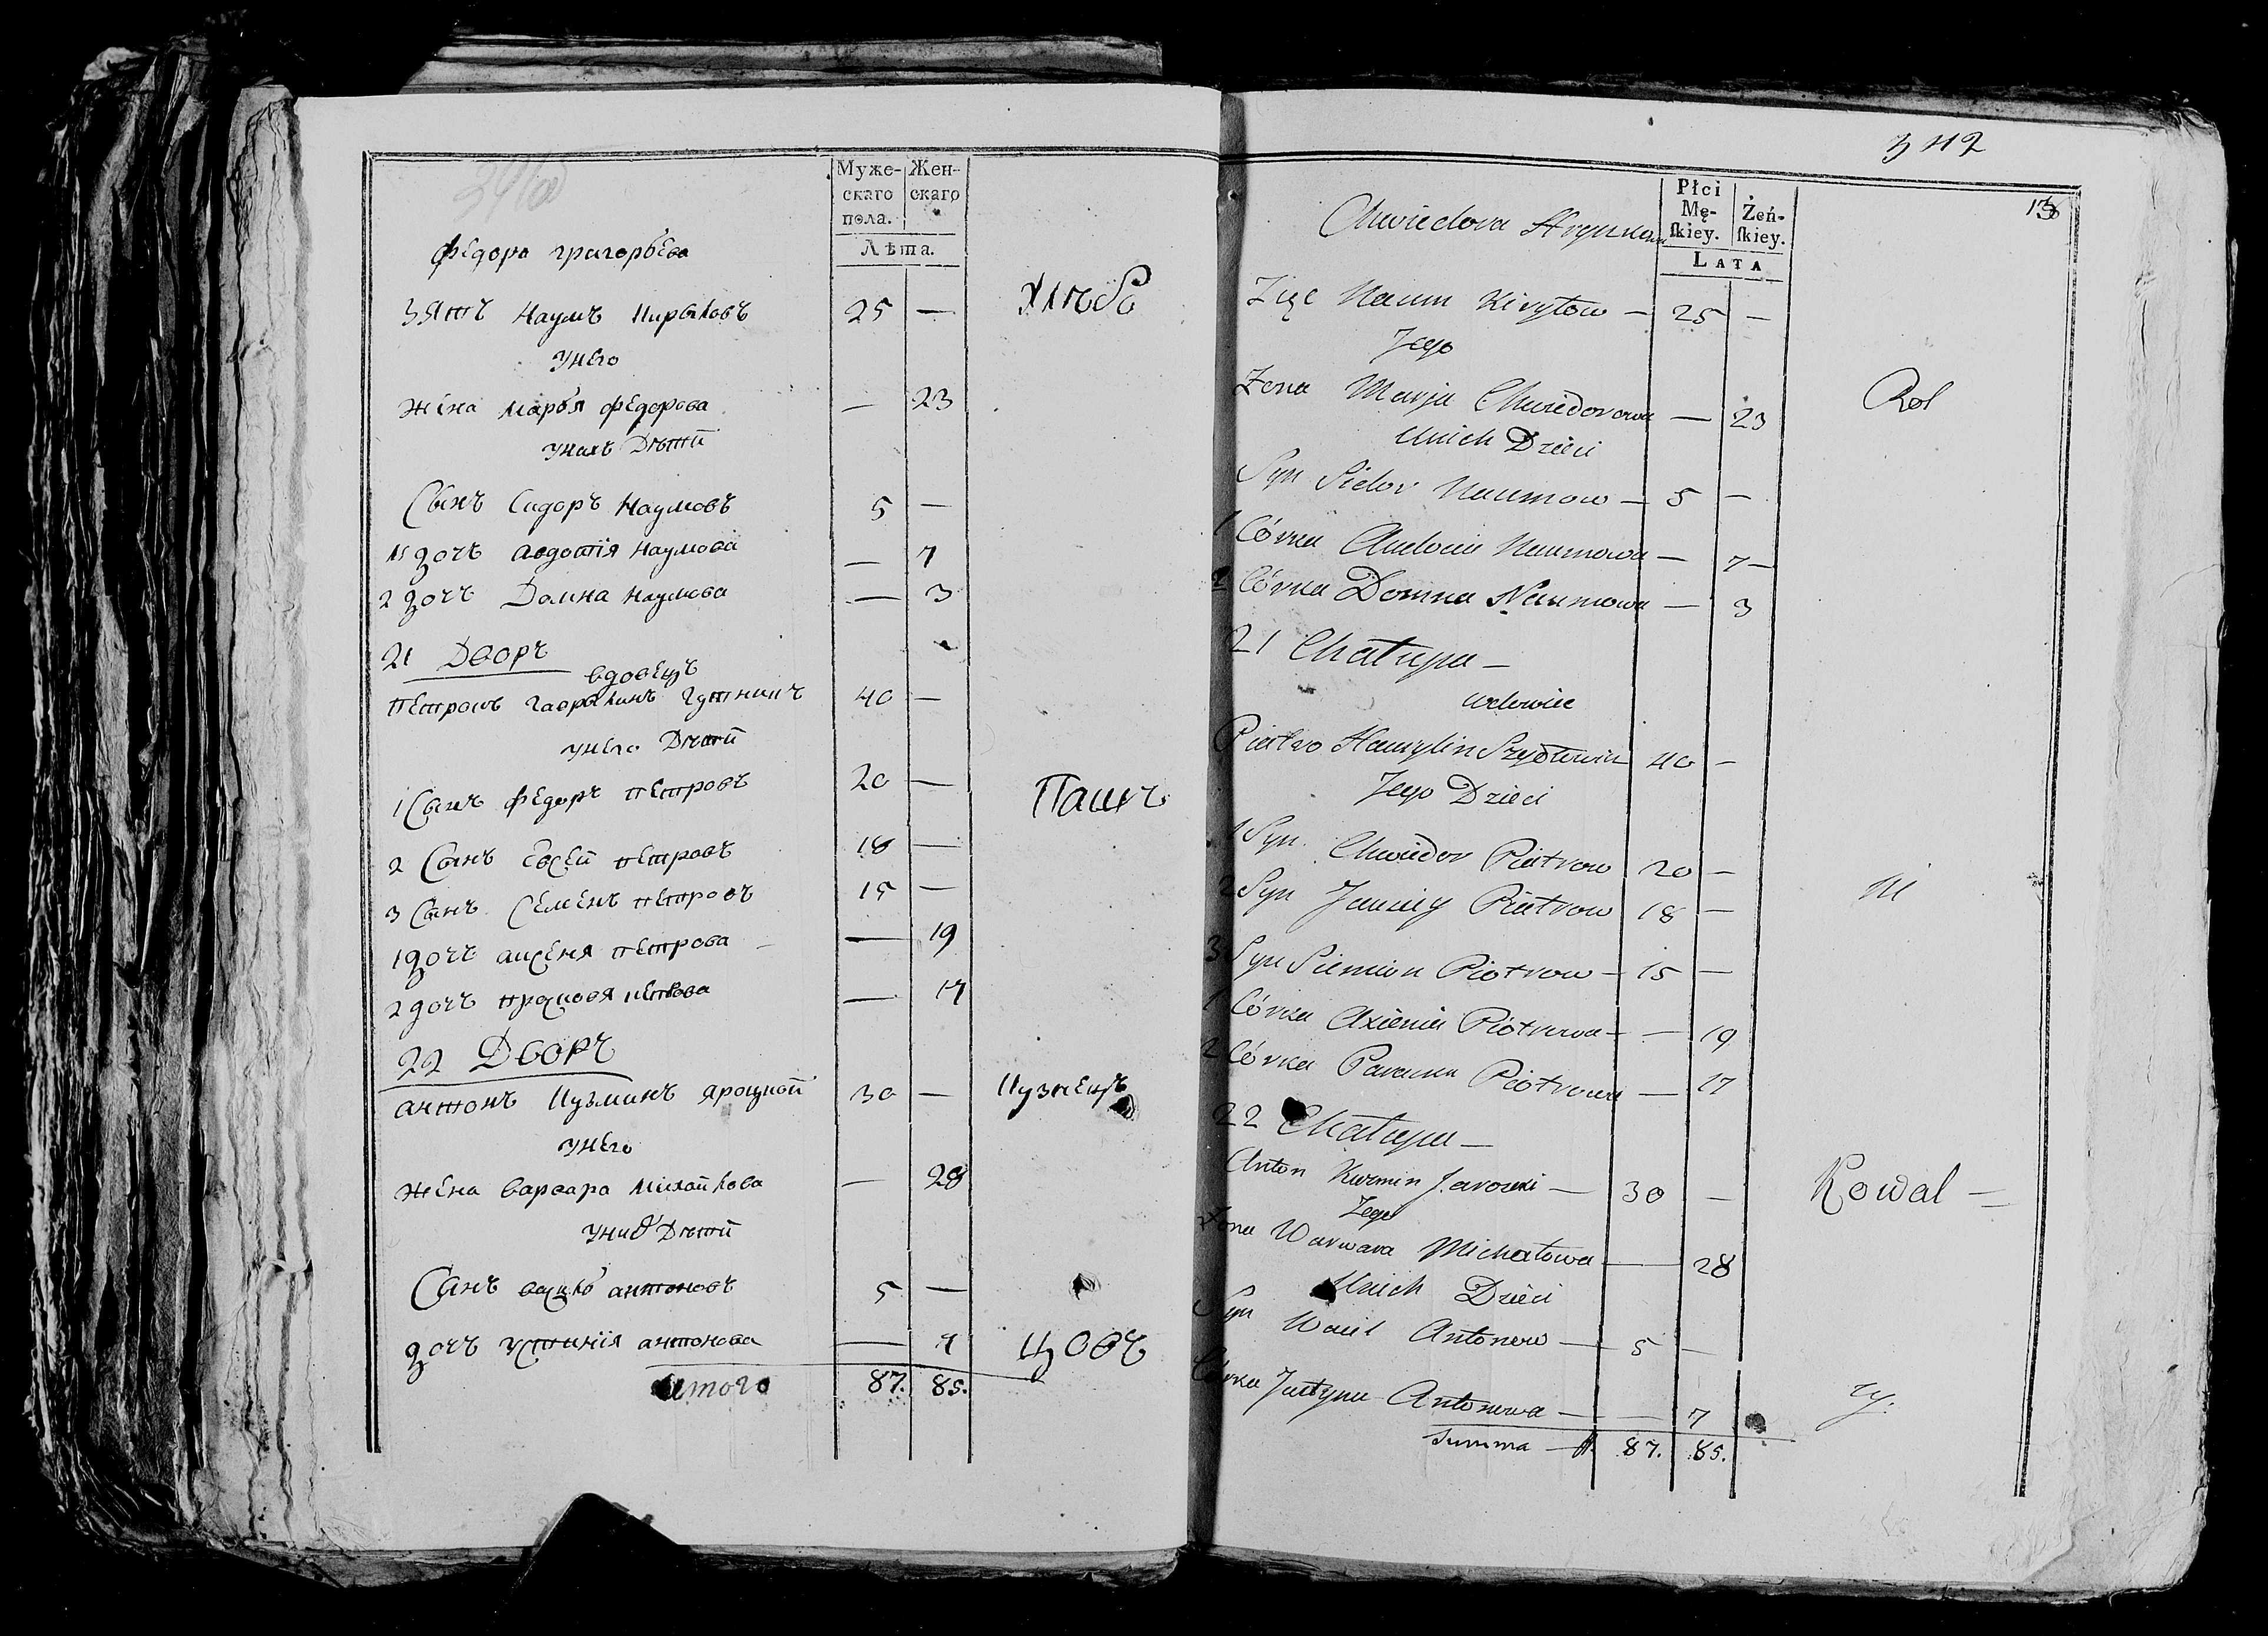 Муже-
скаго
пола.
Жен-
скаго
Лѣта.
Федора григорьева
Зять Наумъ Кирыловъ 25 —
унего
жена марья федорова — 23
унихъ Дѣти
Сынъ Сидоръ Наумовъ 5 —
1 дочь авдотія наумова — 7
2 дочь Домна наумова — 3
21 Дворъ
вдовецъ
петрокъ гаврылинъ 40 —
унего Дѣти
1 Сынъ федоръ петровъ 20 —
2 Сынъ Евсей петровъ 18 —
3 Сынъ Семенъ петровъ 15 —
1 дочь аксеня петрова — 19
2 дочь прасковя петрова — 17
22 Дворъ
антонъ Кузминъ яроцкой 30 —
унего
жена варвара михайлова — 28
унихъ Дѣти
Сынъ василь антоновъ 5 —
дочь устинія антонова — 7
итого 87. 85.
Хлѣбо
Пашъ
Кузнецъ
цовъ
342
136
Płci
Mę-
ſkiey.
Żeń-
ſkiey.
LATA
Chwiedora Hryszkowa
Zięc Naum Kiryłow — 25 —
Jego
Zona Marja Chwiedorowa — 23
Unich Dzieci
Syn Sidor Naumow — 5 —
1 Córka Audocia Naumowa — 7 —
2 Córka Domna Naumowa — 3
21 Chałupa —
wdowiec
Piotro Hawrylin Szydłowicz 40 —
Jego Dzieci
1 Syn Chwiedor Piotrow 20 —
2 Syn Piotrow 18 —
3 Syn Siemion Piotrow — 15 —
1 Córka Axienia Piotrowa — — 19
2 Córka Paraska Piotrowa — 17
22 Chałupa —
Anton Kuzmin Jarocki — 30 —
Jego
Zona Warwara Michałowa — 28
Unich Dzieci
Syn Wasil Antonow — 5 —
Córka Justyna Antonowa — — 7
Summa — 87. 85.
Rol
ni
Kowal —
cy.